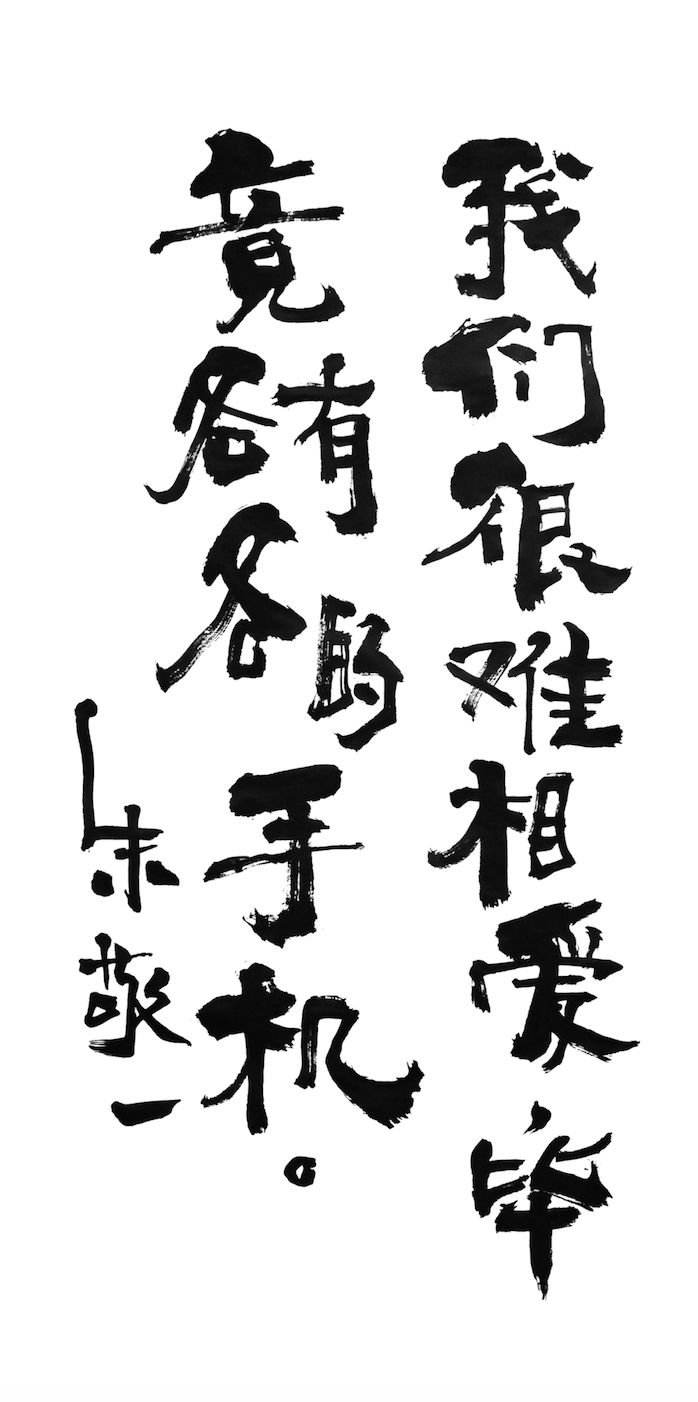 我们很难相爱，毕
竟各有各的手机。
朱敬一